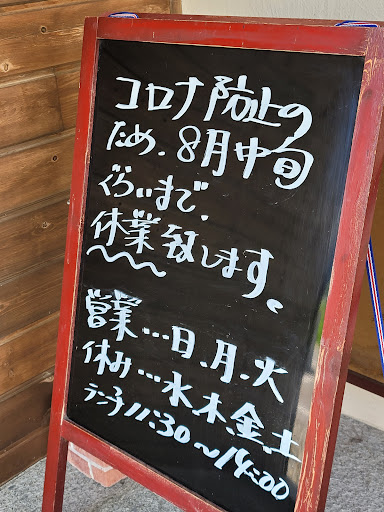 コロナ防止の
ため、8月中旬
ぐらいまで、
休業致します。
営業…日、月、火
休み…水、木、金、土
ランチ11:30～14:00